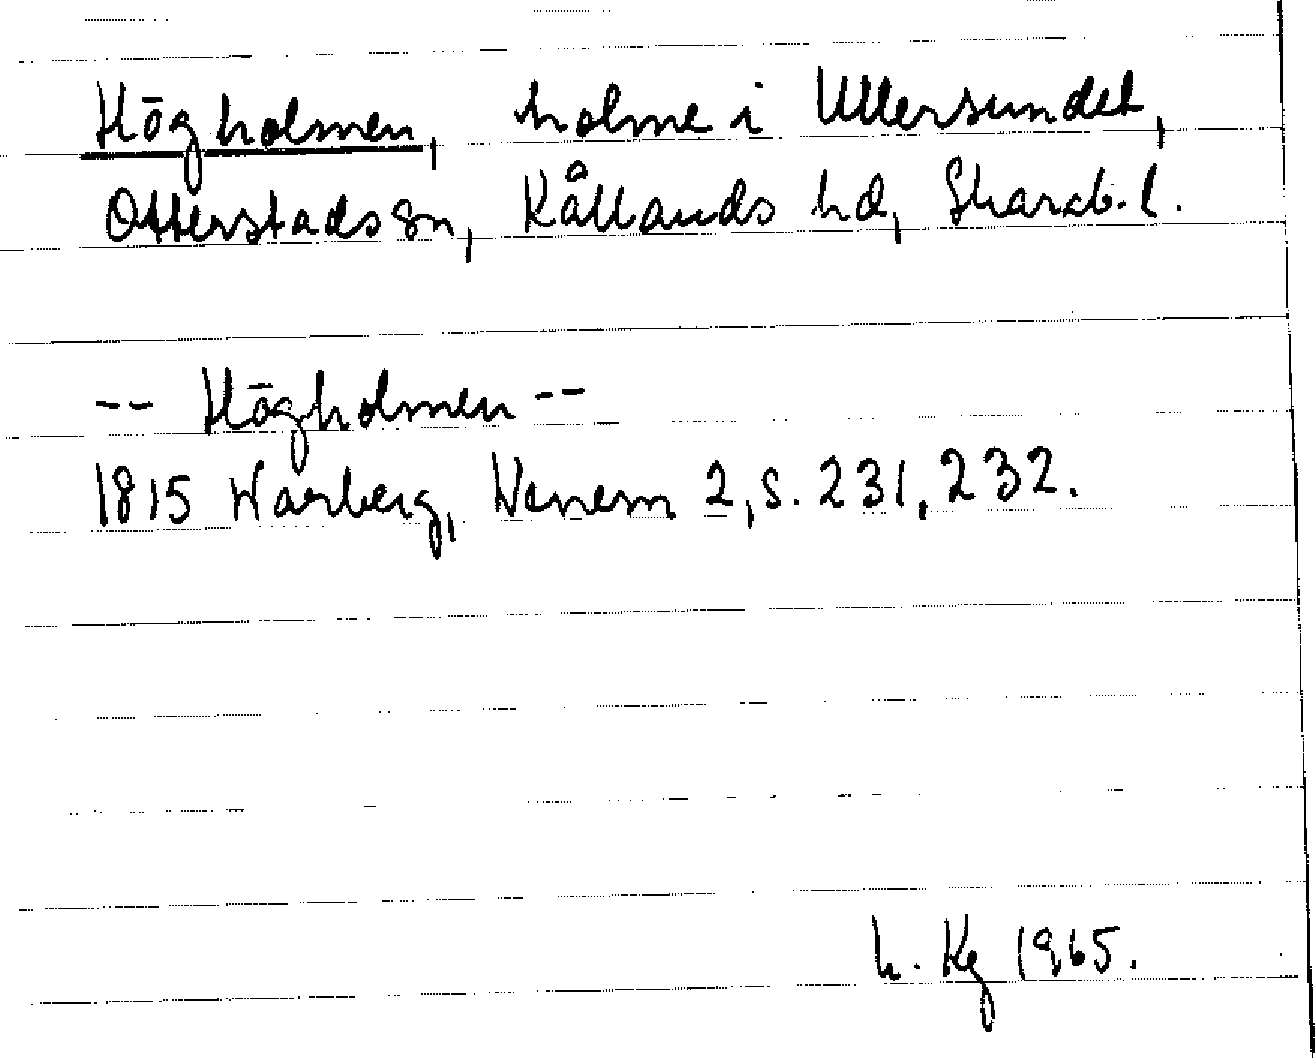 Högholmen, holme i Ullersundet,
Otterstads sn, Kållands hd, Skarab. l.
-- Högholmen --
1815 Warberg, Wenern 2, s. 231, 232.
h. Kg 1965.